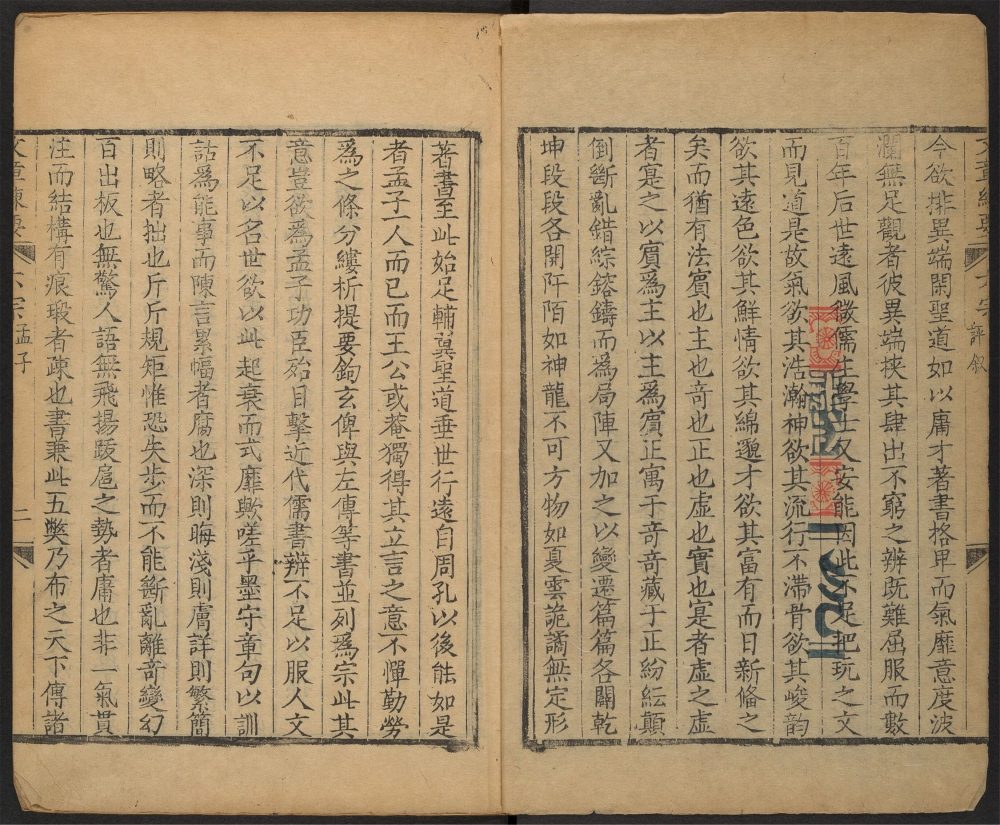 今欲排異端閑聖道如以庸才著書格卑而氣靡意度波
瀾無足觀者彼異端挾其肆出不窮之辨既難屈服而數
百年后世遠風微儒生學士又安能因此不足把玩之文
而見道是故氣欲其浩瀚神欲其流行不滯骨欲其峻韵
欲其遠色欲其鮮情欲其綿邈才欲其富有而日新備之
矣而猶有法賓也主也奇也正也虛也實也寔者虛之虛
者寔之以賓爲主以主爲賓正寓于奇奇藏于正紛紜顛
倒斷亂錯綜鎔鑄而爲局陣又加之以變遷篇篇各闢乾
坤段段各開阡陌如神龍不可方物如夏雲詭譎無定形
文章練要
六宗
評叙
著書至此始足輔翼聖道垂世行遠自周孔以後能如是
者孟子一人而已而王公或菴獨得其立言之意不憚勤勞
爲之條分縷析提要鉤玄俾與左傳等書並列爲宗此其
意豈欲爲孟子功臣殆目擊近代儒書辨不足以服人文
不足以名世欲以此起衰而式靡歟嗟乎墨守章句以訓
詁爲能事而陳言累幅者腐也深則晦淺則膚詳則繁簡
則略者拙也斤斤規矩惟恐失步而不能斷亂離奇變幻
百出板也無驚人語無飛揚跋扈之勢者庸也非一氣貫
注而結構有痕瑕者疎也書兼此五獘乃布之天下傳諸
文章練要
六宗
孟子
二